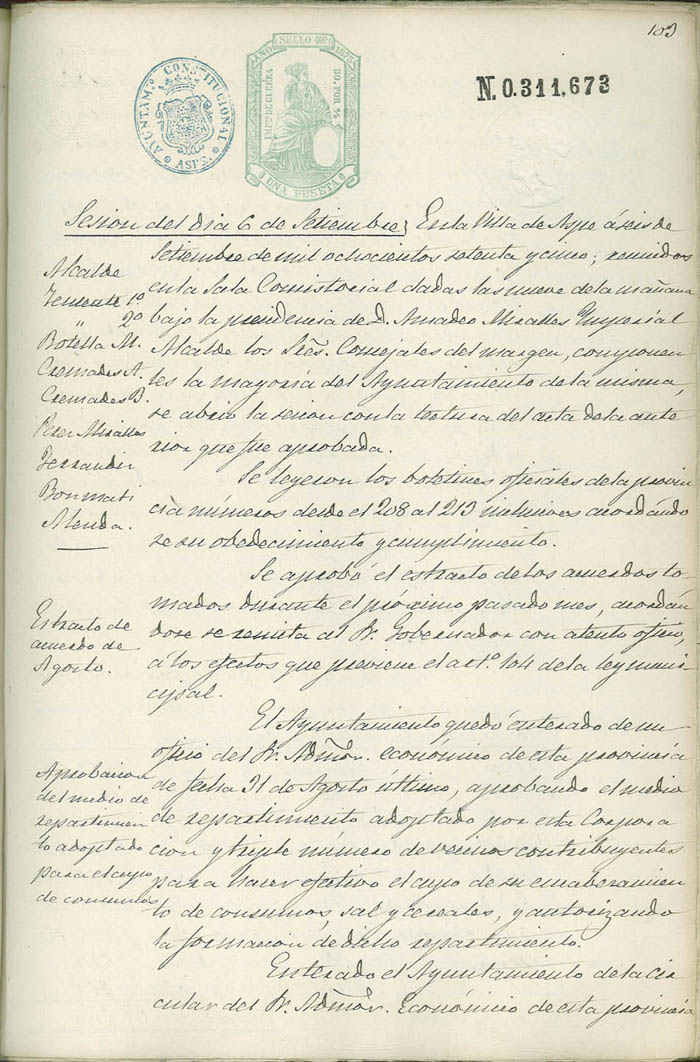 103
AYUNTAM.º CONSTITUCIONAL
ASPE.
SELLO 10º
AÑO 1875
IMP.to DE GUERRA
50. POR %
UNA PESETA
N. 0.311,673
Sesion del dia 6 de Setiembre; En la Villa de Aspe á seis de
Setiembre de mil ochocientos setenta y cinco; reunidos
en la Sala Consistorial dadas las nueve de la mañana
bajo la presidencia de D. Amadeo Miralles Imperial
Alcalde los Sres. Concejales del margen, componen
tes la mayoria del Ayuntamiento de la misma,
se abrio la sesion con la lectura del acta de la ante
rior que fue aprobada.
Alcalde
Temente 1º
" 2º
Botella M.
Cremades A.
Cremades B.
Perez Miralles
Ferrandiz
Bonmati
Alenda.
Se leyeron los boletines oficiales de la provin
cia números desde el 208 al 213 inclusives acordándo
se su obedecimiento y cumplimiento.
Extracto de
acuerdo de
Agosto.
Se aprobó el estracto de los acuerdos to
mados durante el próximo pasado mes, acordan
dose se remita al Sr. Gobernador con atento oficio,
á los efectos que previene el artº. 104 de la ley muni-
cipal.
Aprobacion
del medio de
repartimien
to adoptado
para el cupo
de consumos
El Ayuntamiento quedó enterado de un
oficio del Sr. Admor. económico de esta provincia
de fecha 31 de Agosto último, aprobando el medio
de repartimiento adoptado por esta Corpora
cion y triple número de vecinos contribuyentes
para hacer efectivo el cupo de su encabezamien
to de consumos, sal y cereales, y autorizando
la formacion de dicho repartimiento.
Enterado el Ayuntamiento de la cir
cular del Sr. Admor. Económico de esta provincia